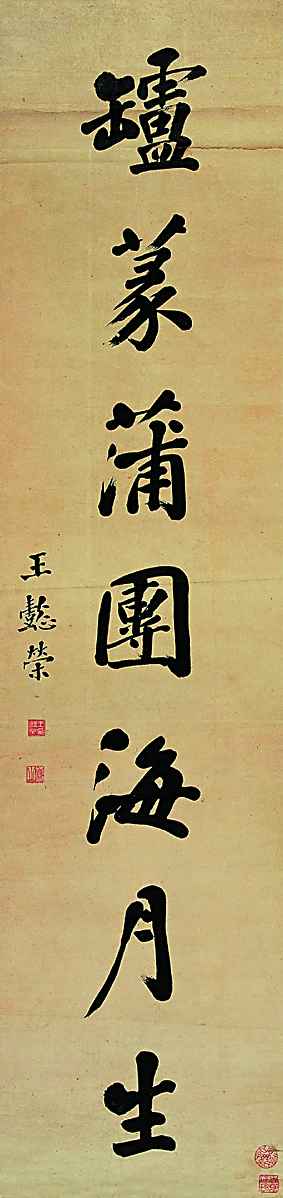 罏篆蒲團海月生
王懿榮